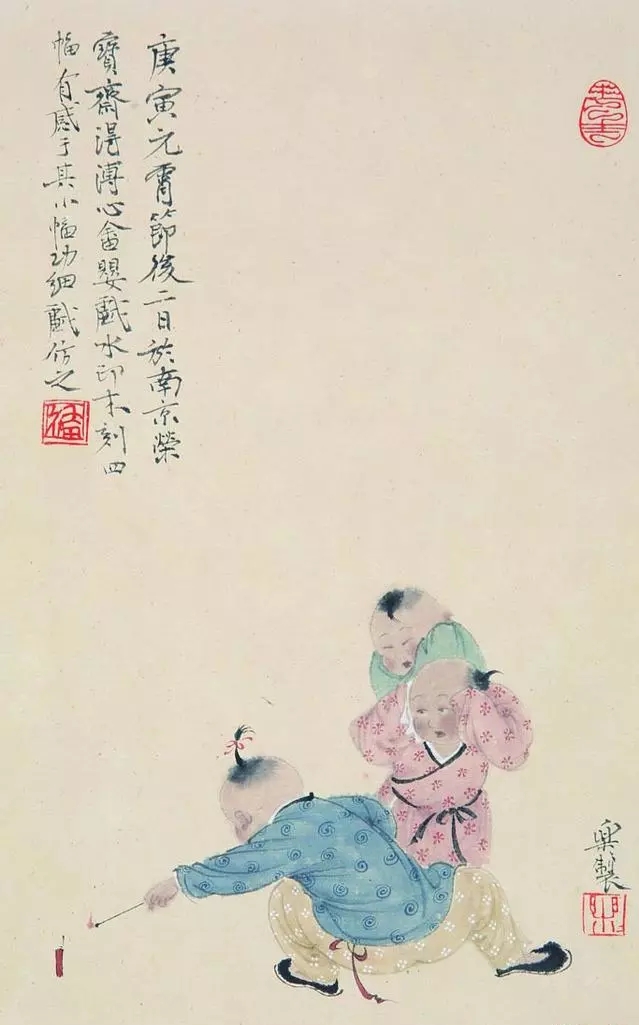 庚寅元宵節後二日於南京榮
寶齋得溥心畬嬰戲水印木刻四
幅有感于其小幅功細戲仿之
樂製